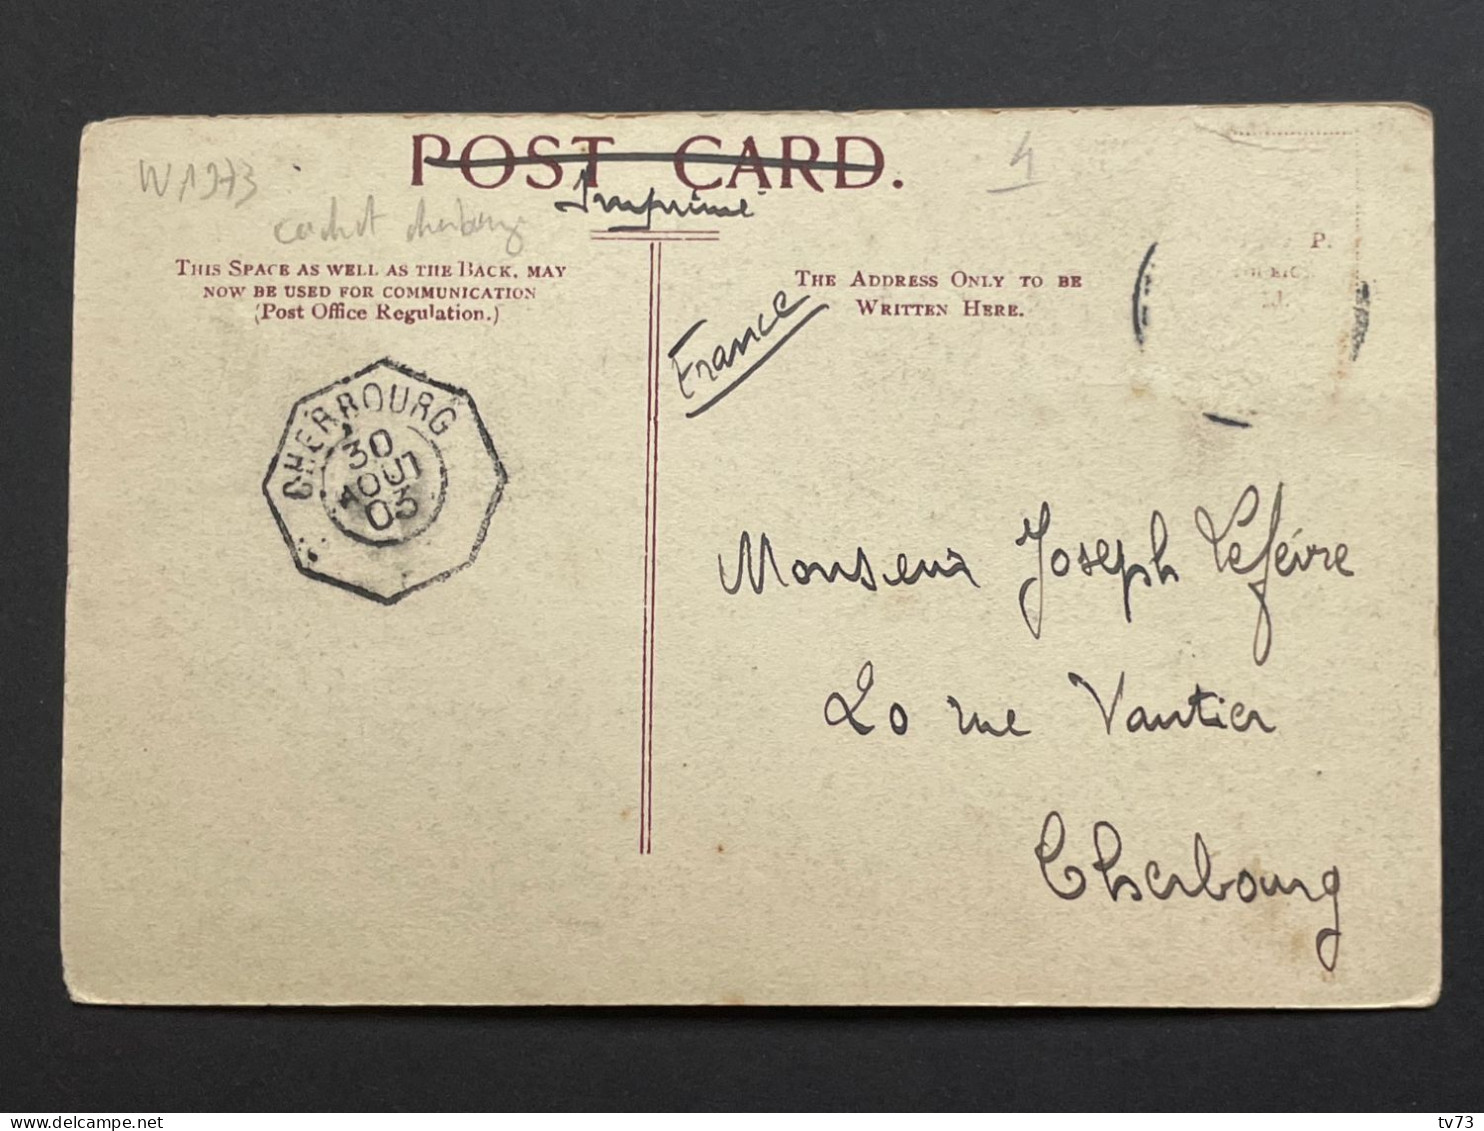 W1973
cachet cherbourg
POST CARD.
Imprimé
4
THIS SPACE AS WELL AS THE BACK, MAY
NOW BE USED FOR COMMUNICATION
(Post Office Regulation.)
THE ADDRESS ONLY TO BE
WRITTEN HERE.
P.
France
CHERBOURG
30
AOUT
03
Monsieur Joseph Lefèvre
20 rue Vautier
Cherbourg
tv73